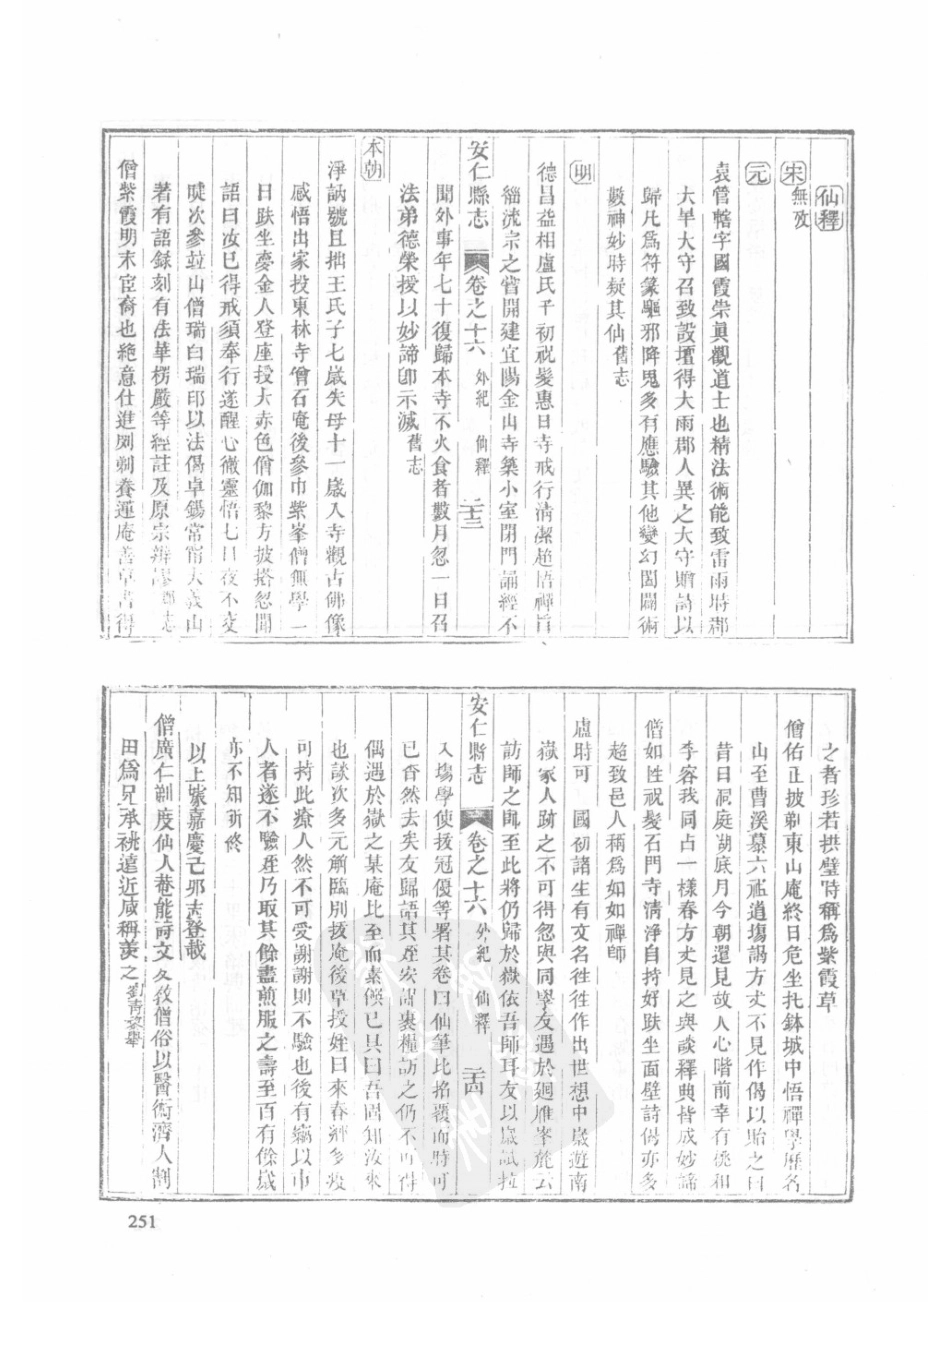 仙釋
宋
無攷
元
袁管轄字國霞崇眞觀道士也精法術能致雷雨時郡
大旱大守召致設壇得大雨郡人異之大守贈詩以
歸凡爲符篆驅邪降鬼多有應驗其他變幻閶闢術
數神妙時疑其仙舊志
明
德昌益相盧氏子初祝髮惠日寺戒行清潔超悟禪旨
緇流宗之嘗開建宜陽金山寺築小室閉門誦經不
安仁縣志 卷之十六 外紀 仙釋 二十三
聞外事年七十復歸本寺不火食者數月忽一日召
法弟德榮授以妙諦卽示滅舊志
本朝
淨訥號且拙王氏子七歲失母十一歲入寺觀古佛像
感悟出家投東林寺僧石庵後參巾紫峯僧無學一
日趺坐夢金人登座授大赤色僧伽黎方披搭忽聞
語曰汝已得戒須奉行遂醒心微靈悟七日夜不交
睫次參竝山僧瑞白瑞印以法偈卓錫常甯大義山
著有語錄刻有法華楞嚴等經註及原宗辨謬郡志
僧紫霞明末宦裔也絶意仕進削剃養蓮庵善草書得
之者珍若拱璧時稱爲紫霞草
僧佑正披剃東山庵終日危坐托鉢城中悟禪學歷名
山至曹溪慕六祖道場謁方丈不見作偈以貽之曰
昔日洞庭湖底月今朝還見故人心階前幸有桃和
李容我同占一樣春方丈見之與談釋典皆成妙諦
僧如性祝髮石門寺清淨自持好趺坐面壁詩偈亦多
超致邑人稱爲如如禪師
盧時可 國初諸生有文名往往作出世想中歲遊南
嶽家人跡之不可得忽與同學友遇於迴雁峯麓云
訪師之鳳至此將仍歸於嶽依吾師耳友以歲試拉
安仁縣志 卷之十六 外紀 仙釋 二十四
入塲學使拔冠優等署其卷曰仙筆比招覆而時可
已杳然去矣友歸語其姪宏謨裹糧訪之仍不可得
偶遇於嶽之某庵比至而素候已具曰吾固知汝來
也談次多元解臨別拔庵後草授姪曰來春鄉多疫
可持此療人然不可受謝謝則不驗也後有竊以市
人者遂不驗姪乃取其餘盡煎服之壽至百有餘歲
亦不知所終
以上家嘉慶己卯志登載
僧廣仁剃度仙人巷能詩文久敎僧俗以醫術濟人割
田爲兄承祧遠近咸稱羨之劉靑黎舉
251